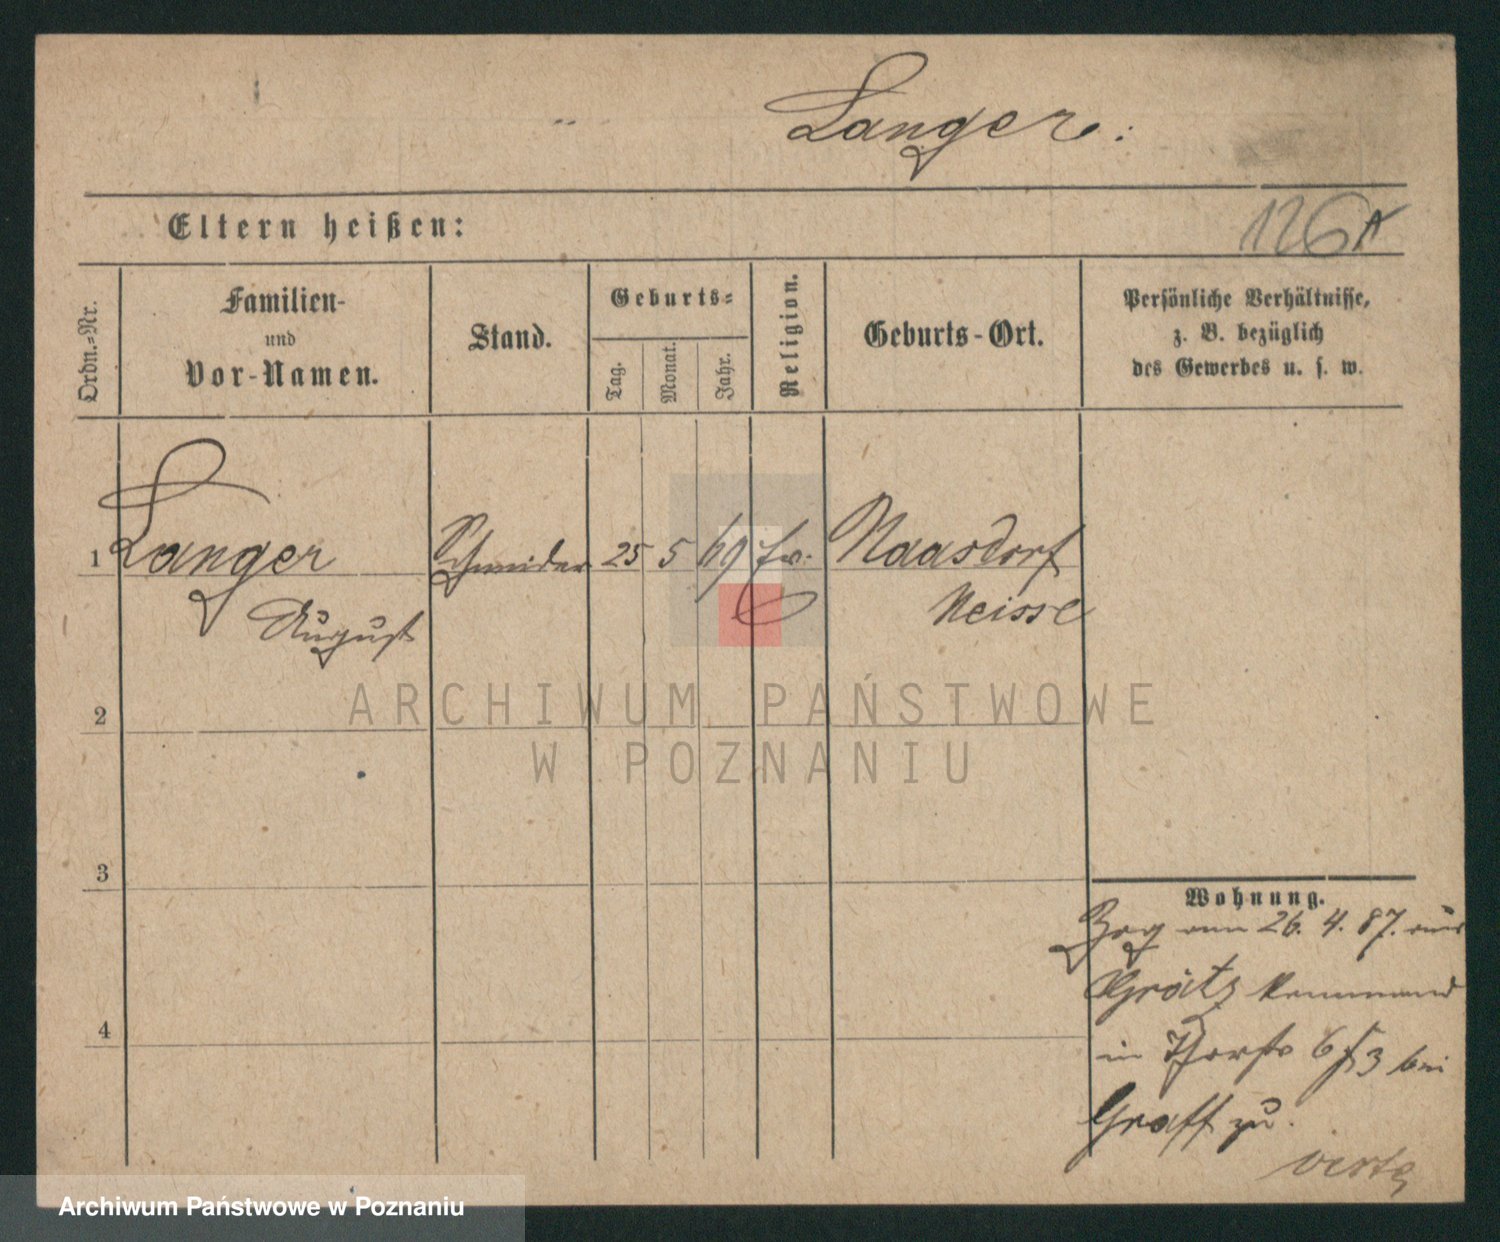 Langer.
Eltern heißen:
126 A
Ordn.-Nr.
Familien-
und
Vor-Namen.
Stand.
Geburts-
Tag.
Monat.
Jahr.
Religion.
Geburts-Ort.
Persönliche Verhältnisse,
z. B. bezüglich
des Gewerbes u. s. w.
1 Langer Schneider 25 5 69 Naasdorf
August Neisse
ARCHIWUM PAŃSTWOWE
2
W POZNANIU
3
Wohnung.
Zog am 26. 4. 87. aus
Grätz kommend
in 6 3 bei
4
Graff zu.
verte
Archiwum Państwowe w Poznaniu